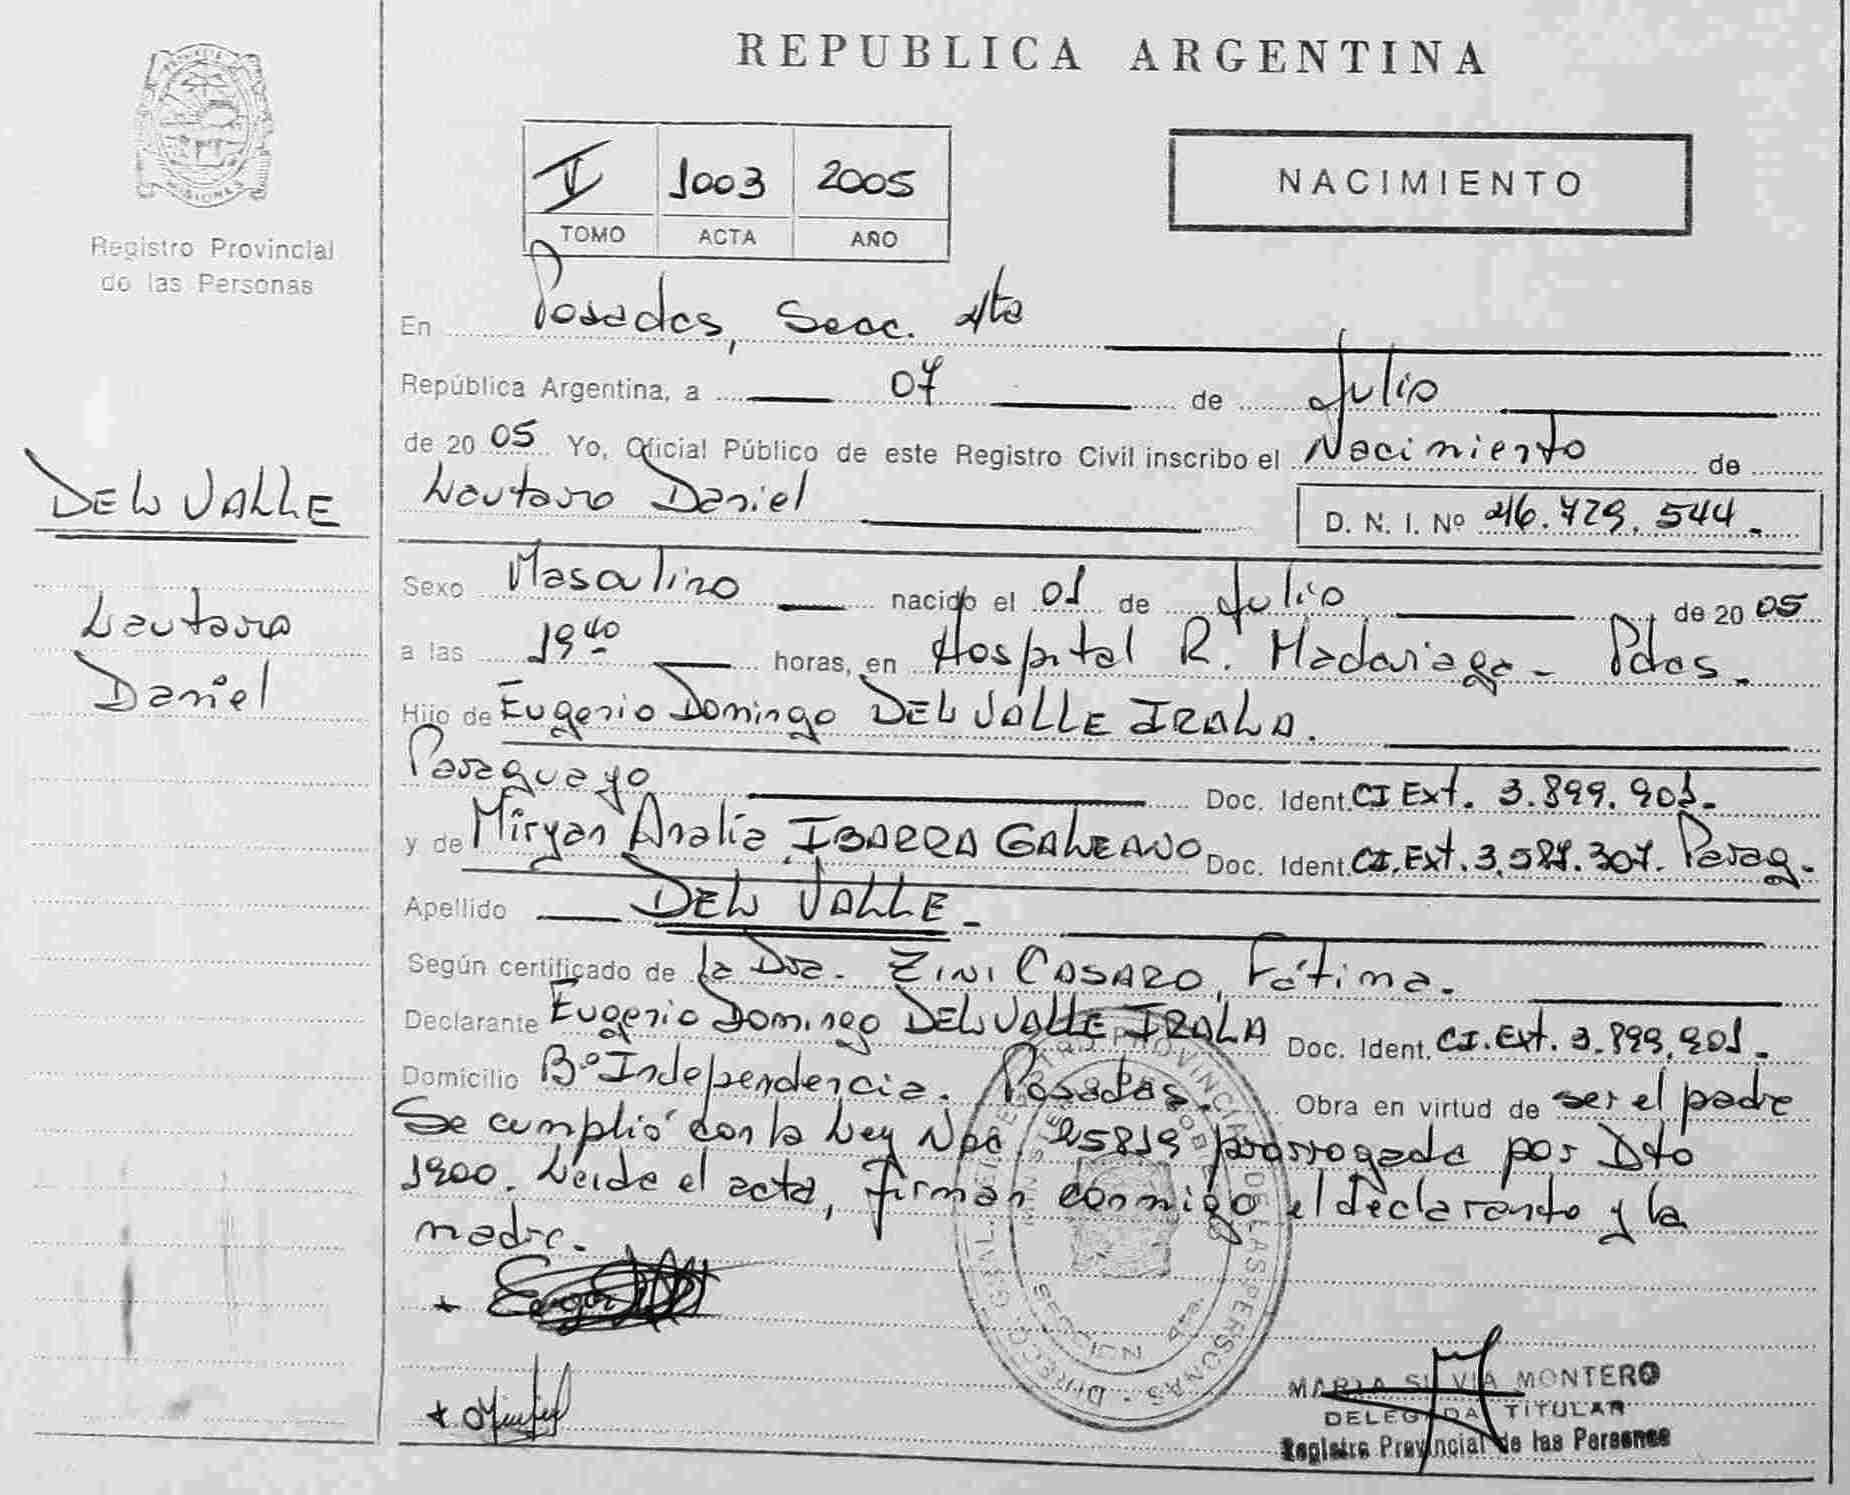 REPUBLICA ARGENTINA
PROVINCIA
MISIONES
Registro Provincial
de las Personas
I 1003 2005
TOMO ACTA AÑO
NACIMIENTO
En Posadas, Secc. 4ta
República Argentina, a 07 de Julio
de 2005 Yo, Oficial Público de este Registro Civil inscribo el Nacimiento de
Lautaro Daniel D. N. I. Nº 46.729.544.-
DEL VALLE
Lautaro
Daniel
Sexo Masculino nacido el 01 de Julio de 2005
a las 19 40 horas, en Hospital R. Madariaga - Pdas.
Hijo de Eugenio Domingo DEL VALLE IRALA.
Paraguayo Doc. Ident. CI Ext. 3.899.901.-
y de Miryan Analia IBARRA GALEANO Doc. Ident. CI.Ext. 3.587.307. Parag.
Apellido DEL VALLE.-
Según certificado de la Dra. ZINI CASARO, Fátima.
Declarante Eugenio Domingo DEL VALLE IRALA Doc. Ident. CI.Ext. 3.899.901.-
Domicilio Bº Independencia. Posadas. Obra en virtud de ser el padre
Se cumplió con la Ley Nac 25819 prorrogada por Dto
1900. Leída el acta, firman conmigo el declarante y la
madre.
REGISTRO PROVINCIAL DE LAS PERSONAS - DIRECC. GRAL.
SECCION 4ta.
MARIA SILVIA MONTERO
DELEGADA TITULAR
Registro Provincial de las Personas